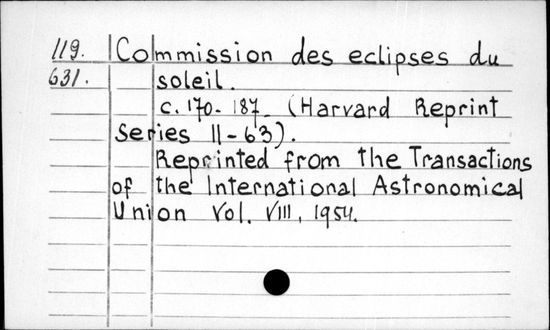 119. Commission des eclipses du
631. soleil.
c. 170-187 (Harvard Reprint
Series II-63).
Reprinted from the Transactions
of the International Astronomical
Union Vol. VIII, 1954.